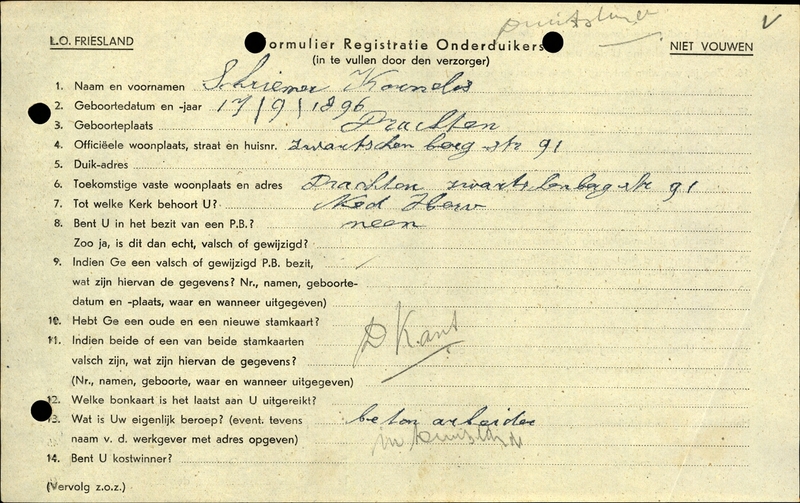 L.O. FRIESLAND
Formulier Registratie Onderduikers
NIET VOUWEN
(in te vullen door den verzorger)
1. Naam en voornamen Schriemer Kornelis
2. Geboortedatum en -jaar 17/9/1896
3. Geboorteplaats Drachten
4. Officiëele woonplaats, straat en huisnr. zwartschenberg str 91
5. Duik-adres
6. Toekomstige vaste woonplaats en adres Drachten zwartschenberg str 91
7. Tot welke Kerk behoort U? Ned Herv
8. Bent U in het bezit van een P.B.? neen
Zoo ja, is dit dan echt, valsch of gewijzigd?
9. Indien Ge een valsch of gewijzigd P.B. bezit,
wat zijn hiervan de gegevens? Nr., namen, geboorte-
datum en -plaats, waar en wanneer uitgegeven)
10. Hebt Ge een oude en een nieuwe stamkaart?
D Kant
11. Indien beide of een van beide stamkaarten
valsch zijn, wat zijn hiervan de gegevens?
(Nr., namen, geboorte, waar en wanneer uitgegeven)
12. Welke bonkaart is het laatst aan U uitgereikt?
13. Wat is Uw eigenlijk beroep? (event. tevens beton arbeider
naam v. d. werkgever met adres opgeven) in Duitslande
14. Bent U kostwinner?
(Vervolg z.o.z.)